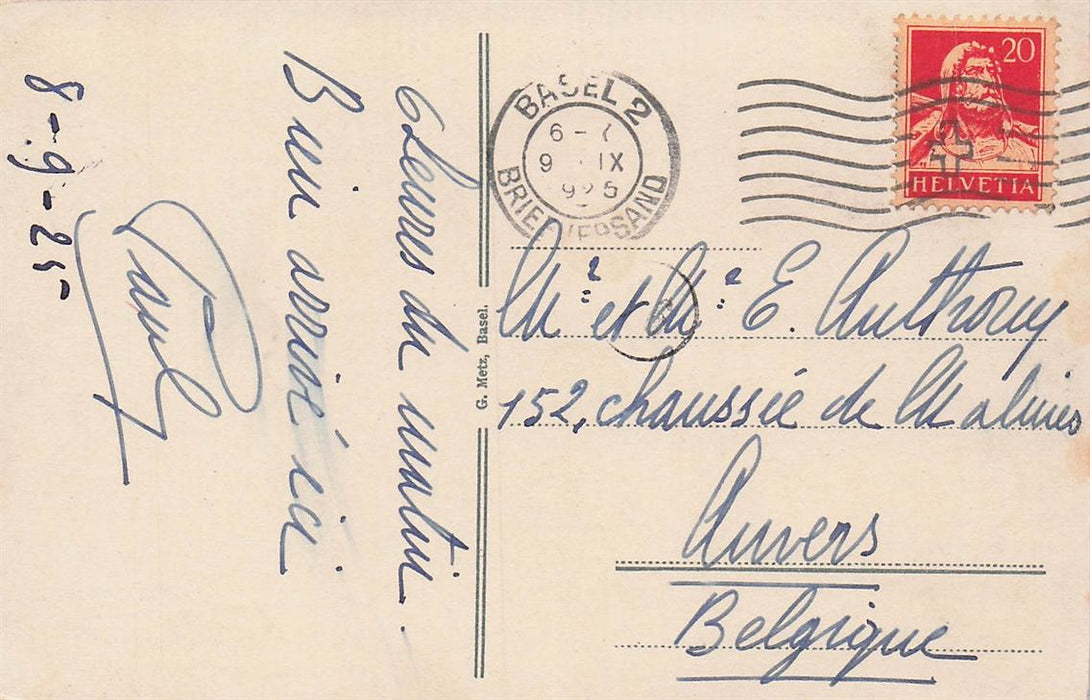 8-9-25-
6 heures du matin.
Bien arrivé ici
Paul
G. Metz, Basel.
BASEL 2
6-7
9 IX
1925
BRIEFVERSAND
20
HELVETIA
Mr et Me E. Anthony
152, chaussée de Malines
Anvers
Belgique